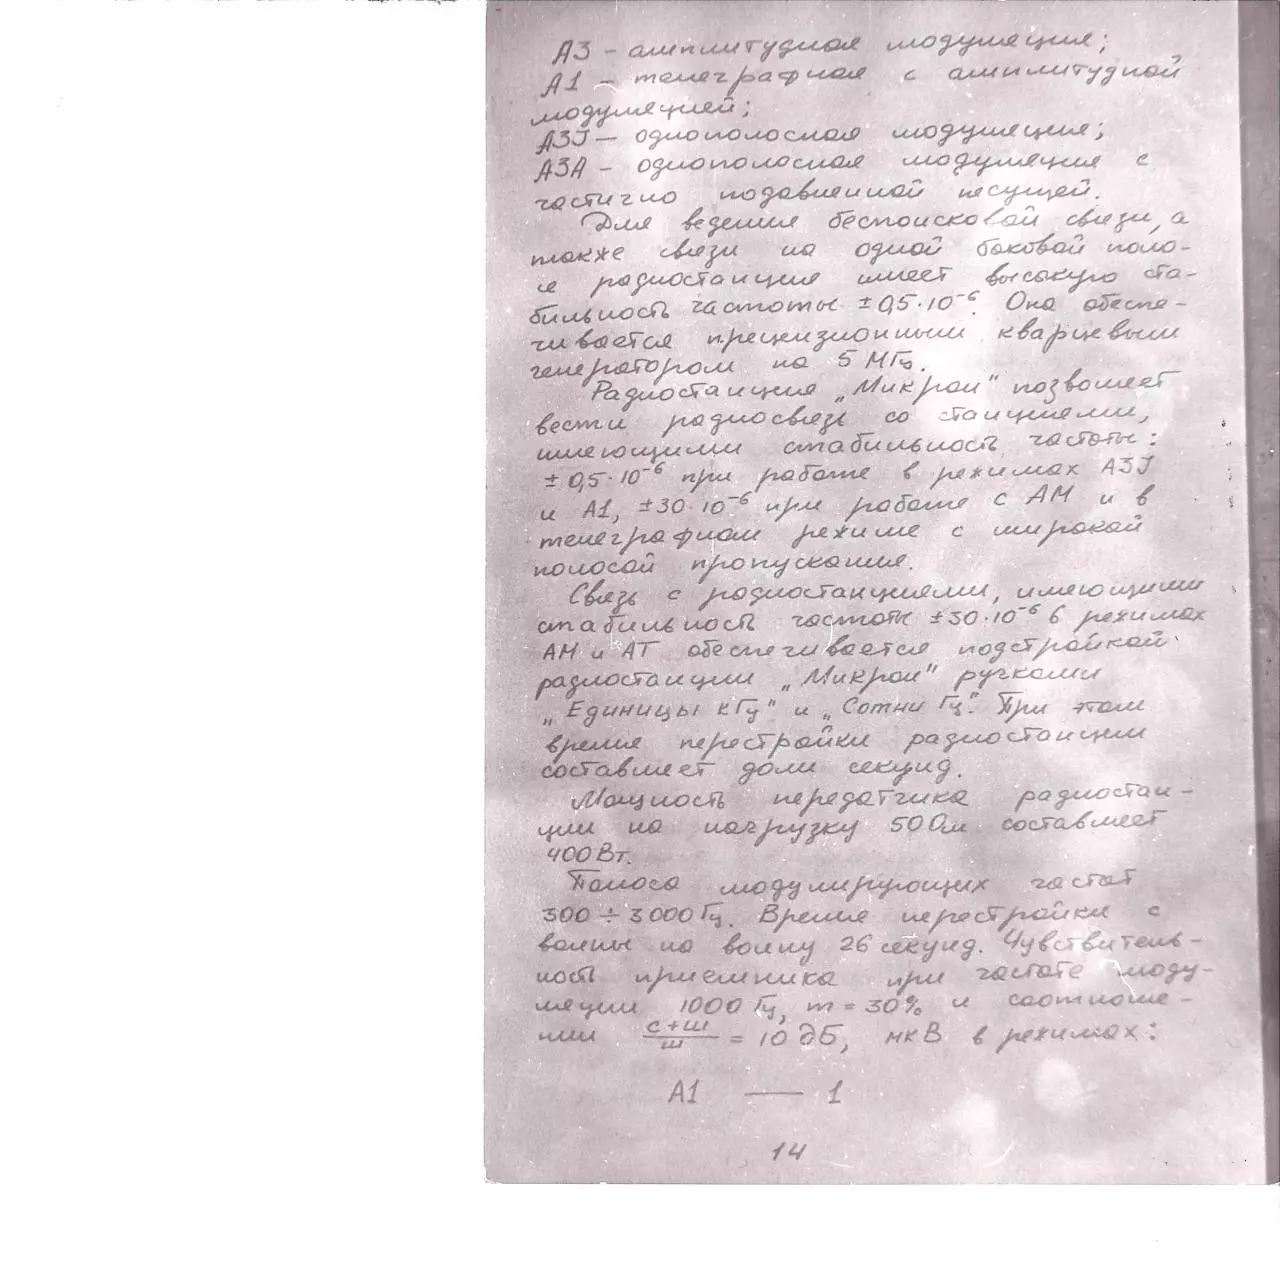 А3 – амплитудная модуляция;
А1 – телеграфная с амплитудной
модуляцией;
А3J – однополосная модуляция;
А3А – однополосная модуляция с
частично подавленной несущей.
Для ведения беспоисковой связи, а
также связи на одной боковой поло-
се радиостанция имеет высокую ста-
бильность частоты ±0,5·10⁻⁶. Она обеспе-
чивается прецизионным кварцевым
генератором на 5 МГц.
Радиостанция „Микрон" позволяет
вести радиосвязь со станциями,
имеющими стабильность частоты:
±0,5·10⁻⁶ при работе в режимах А3J
и А1, ±30·10⁻⁶ при работе с АМ и в
телеграфном режиме с широкой
полосой пропускания.
Связь с радиостанциями, имеющими
стабильность частоты ±30·10⁻⁶ в режимах
АМ и АТ обеспечивается подстройкой
радиостанции „Микрон" ручками
„Единицы кГц" и „Сотни Гц". При этом
время перестройки радиостанции
составляет доли секунд.
Мощность передатчика радиостан-
ции на нагрузку 50 Ом составляет
400 Вт.
Полоса модулирующих частот
300 ÷ 3000 Гц. Время перестройки с
волны на волну 26 секунд. Чувствитель-
ность приемника при частоте моду-
ляции 1000 Гц, m = 30% и соотноше-
нии (с+ш)/ш = 10 дБ, мкВ в режимах:
А1 — 1
14